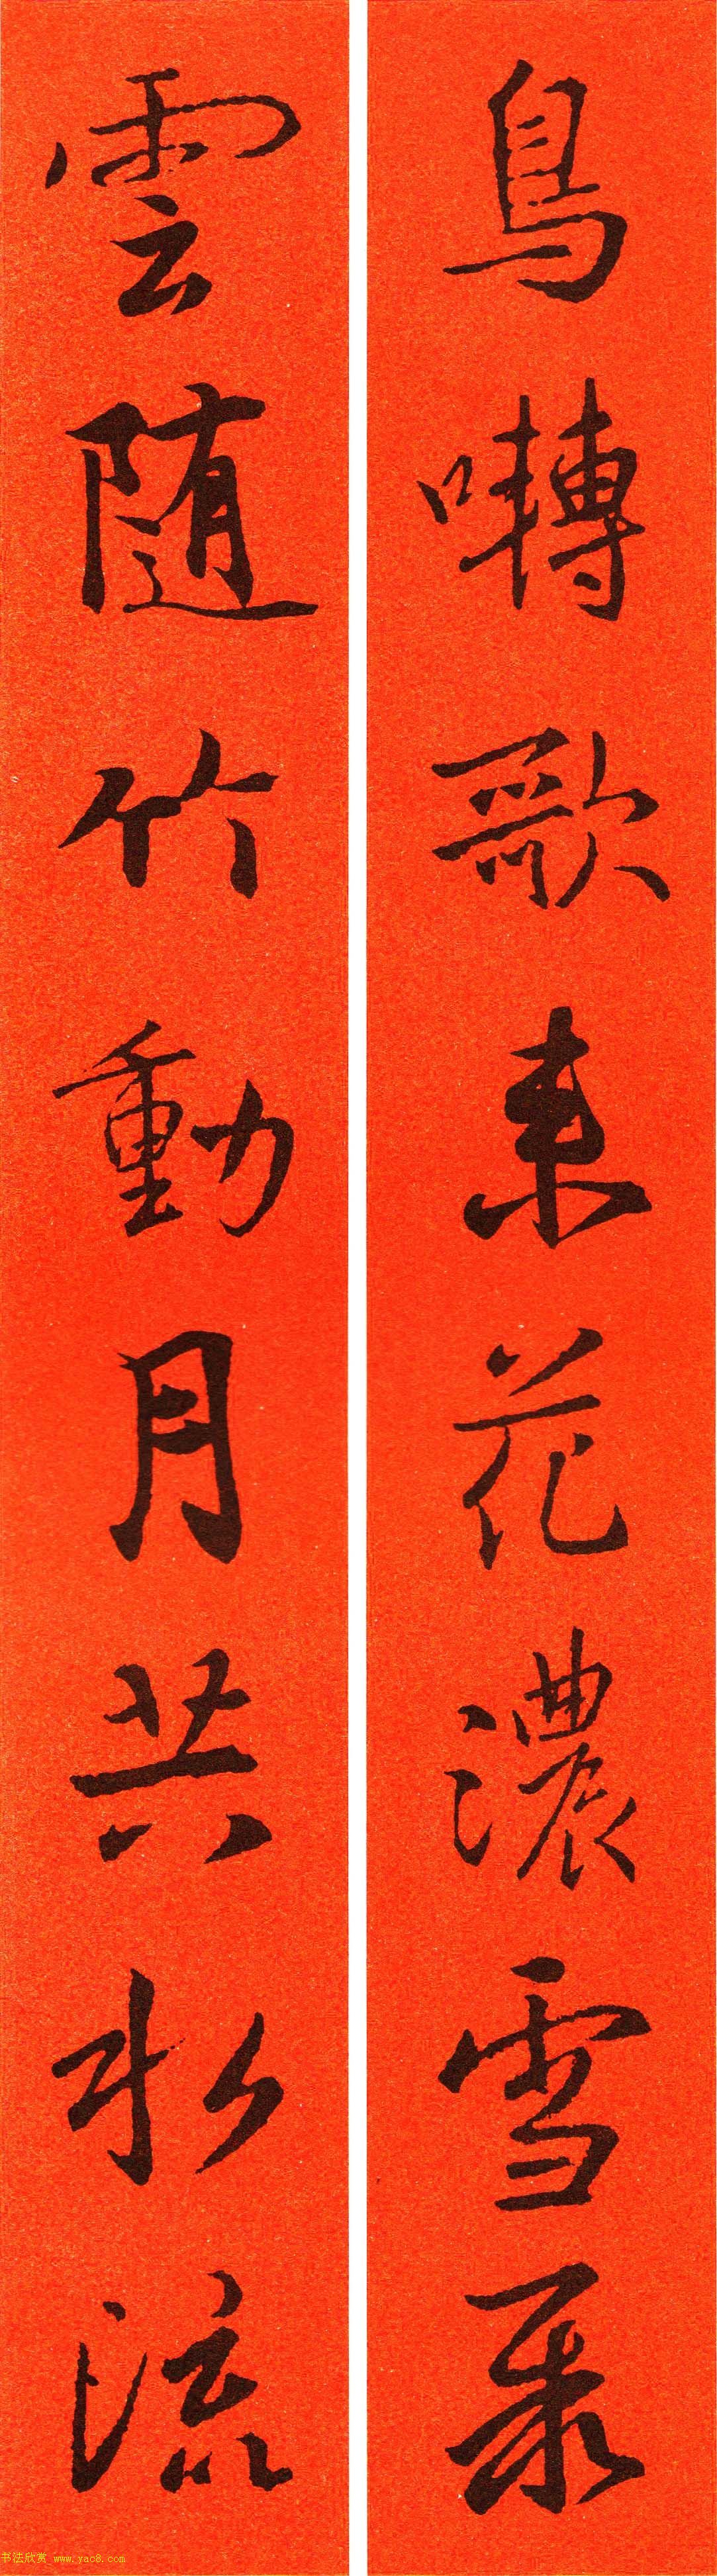 鳥囀歌来花濃雪聚
雲随竹動月共水流
书法欣赏 www.yac8.com